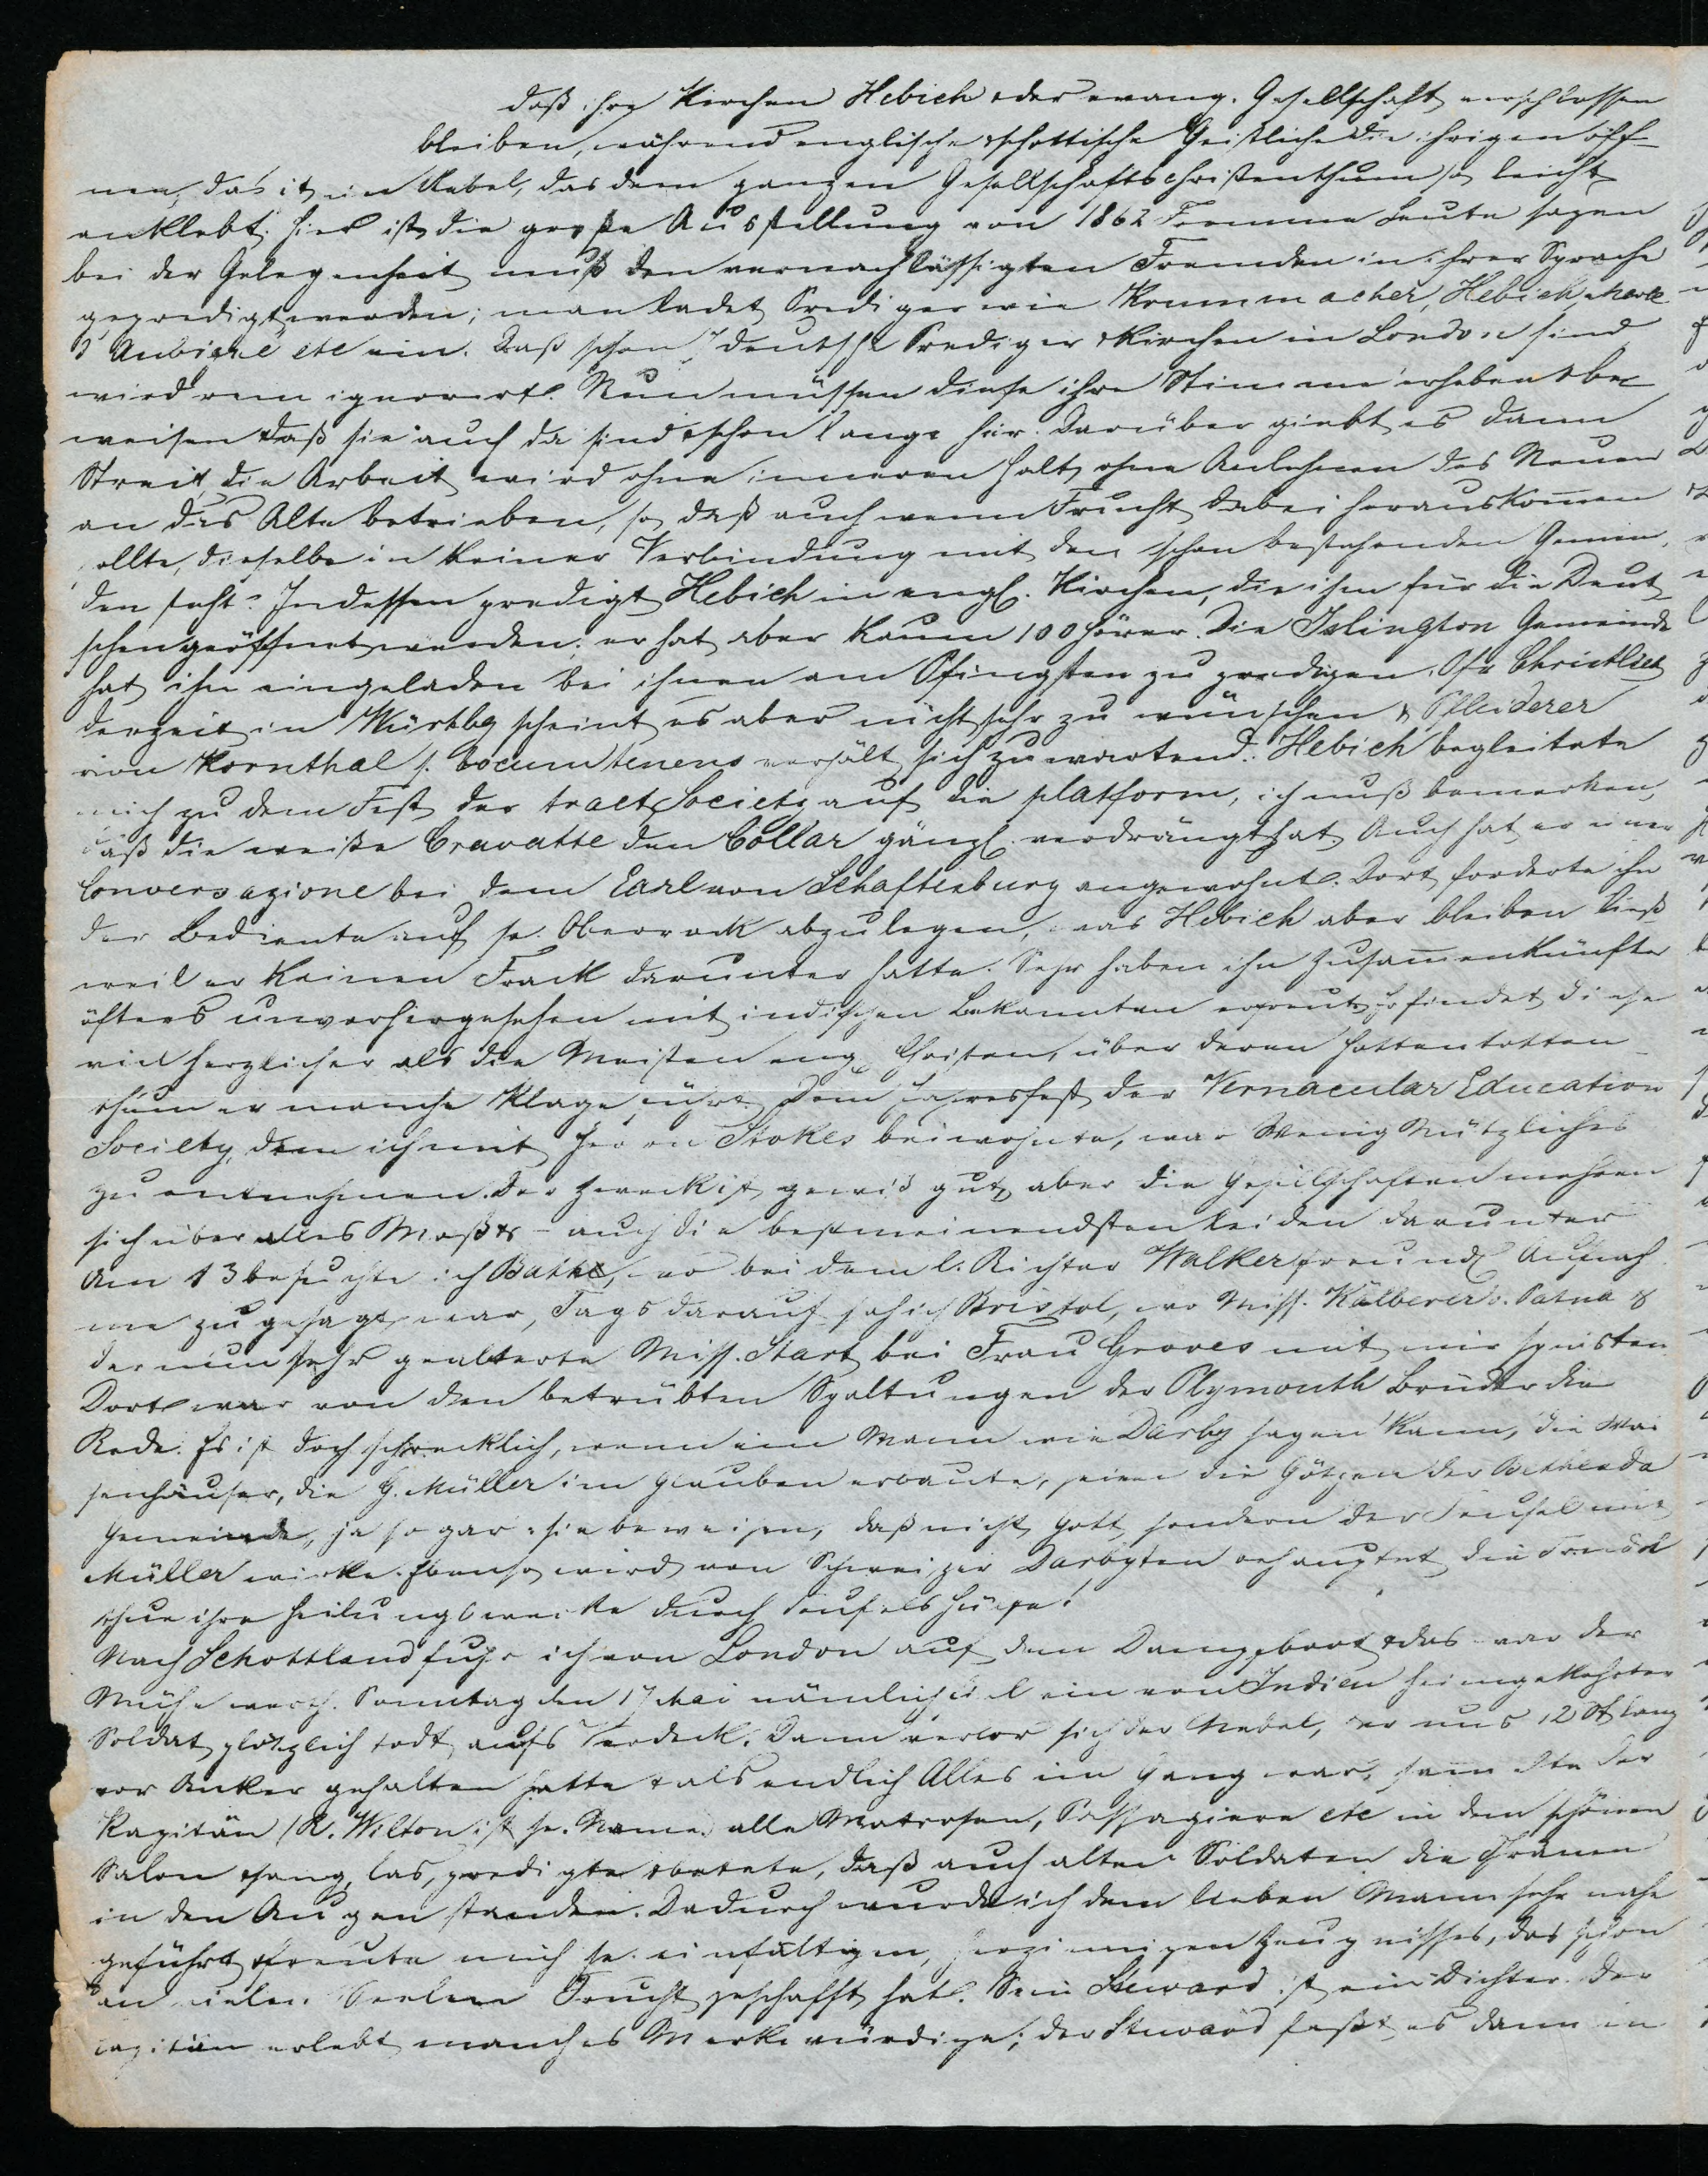 daß ihre Kirchen Hebich & der evang. Gesellschaft verschlossen
bleiben, während englische & schottische Geistliche die ihrigen öff-
nen, das ist ein Uebel, das dem ganzen Gesellschaftschristenthum so leicht
anklebt. Hier ist die große Ausstellung von 1862 Fromme Leute sagen
bei der Gelegenheit muß den vernachlässigten Fremden in ihrer Sprache
gepredigt werden; man ladet Prediger wie Krummacher, Hebich, Merle
d'Aubigné etc ein. Daß schon 7 deutsche Prediger & Kirchen in London sind
wird rein ignorirt. Nun müssen diese ihre Stimme erheben & be-
weisen daß sie auch da sind & schon lange hier. Darüber giebt es dann
Streit, die Arbeit wird ohne inneren Halt, ohne Anlehnen des Neuen
an das Alte betrieben, so daß auch wenn Frucht dabei herauskomen
sollte, dieselbe in keiner Verbindung mit den schon bestehenden Gemein,
den steht. Indessen predigt Hebich in engl. Kirchen, die ihm für die Deut
schen geöffnet wurden; er hat aber kaum 100 Hörer. Die Islington Gemeinde
hat ihn eingeladen bei ihnen am Pfingsten zu predigen. Pfr Christlieb
derzeit in Würtbg scheint es aber nicht sehr zu wünschen & Pfleiderer
von Kornthal s. locum tenens verhält sich zuwartend. Hebich begleitete
mich zu dem Fest der tract Society auf die platform, ich muß bemerken,
daß die weiße Cravatte den Collar gänzl. verdrängt hat. Auch hat er einer
Conversazione bei dem Earl von Schaftesbury angewohnt. Dort forderte ihn
der Bediente auf, se. Oberrock abzulegen, was Hebich aber bleiben ließ
weil er keinen Frack darunter hatte. Sehr haben ihn Zusamenkünfte
öfters unvorhergesehen mit indischen Bekannten erfreut, er findet diese
viel herzlicher als die Meisten eng. Christen, über deren Hottentotten-
thum er manche Klage führt. Dem Jahresfest der Vernacular Education
Society, dem ich mit Herrn Stokes beiwohnte, war Wenig Nützliches
zu entnehmen. Der Zweck ist gewiß gut, aber die Gesellschaften mehren
sich über alles Maß & - auch die bestmeinendsten leiden darunter
Am 13 besuchte ich Bath, wo bei dem l. Richter Walker freundl Aufnah
me zugesagt war, Tags darauf sah ich Bristol, wo Miss. Kälberer v. Patna &
der nun sehr gealterte Miss. Start bei Frau Groves mit mir speisten
Dort war von den betrübten Spaltungen der Plymouth Brüder die
Rede. Es ist doch schrecklich, wenn ein Mann wie Darby sagen kann, die Wai
senhäuser, die G. Müller im Glauben erbaute, seien die Götzen der Bethesda
Gemeinde, ja sogar: sie beweisen, daß nicht Gott sondern der Teufel mit
Müller wirke. Ebenso wird von Schweizer Darbyten behauptet die Trudel
thue ihre Heilungswerke durch Teufelshülfe!
Nach Schottland fuhr ich von London auf dem Dampfboot & das war der
Mühe werth. Sonntag den 17 Mai nämlich fiel ein von Indien heimgekehrter
Soldat plötzlich todt aufs Verdeck. Dann verlor sich der Nebel, der uns 12 St lang
vor Anker gehalten hatte & als endlich Alles im Gang war, samelte der
Kapitän (R. Wilton ist se. Name) alle Matrosen, Passagiere etc in dem schönen
Salon & sang, las, predigte & betete, daß auch alten Soldaten die Thränen
in den Augen standen. Dadurch wurde ich dem lieben Mann sehr nahe
geführt & freute mich se. einfältigen, herzinnigen Zeugnisses, das schon
an vielen Seelen Frucht geschafft hat. Sein Steward ist ein Dichter. Der
Capitän erlebt manches Merkwürdige; der Steward faßt es dann in